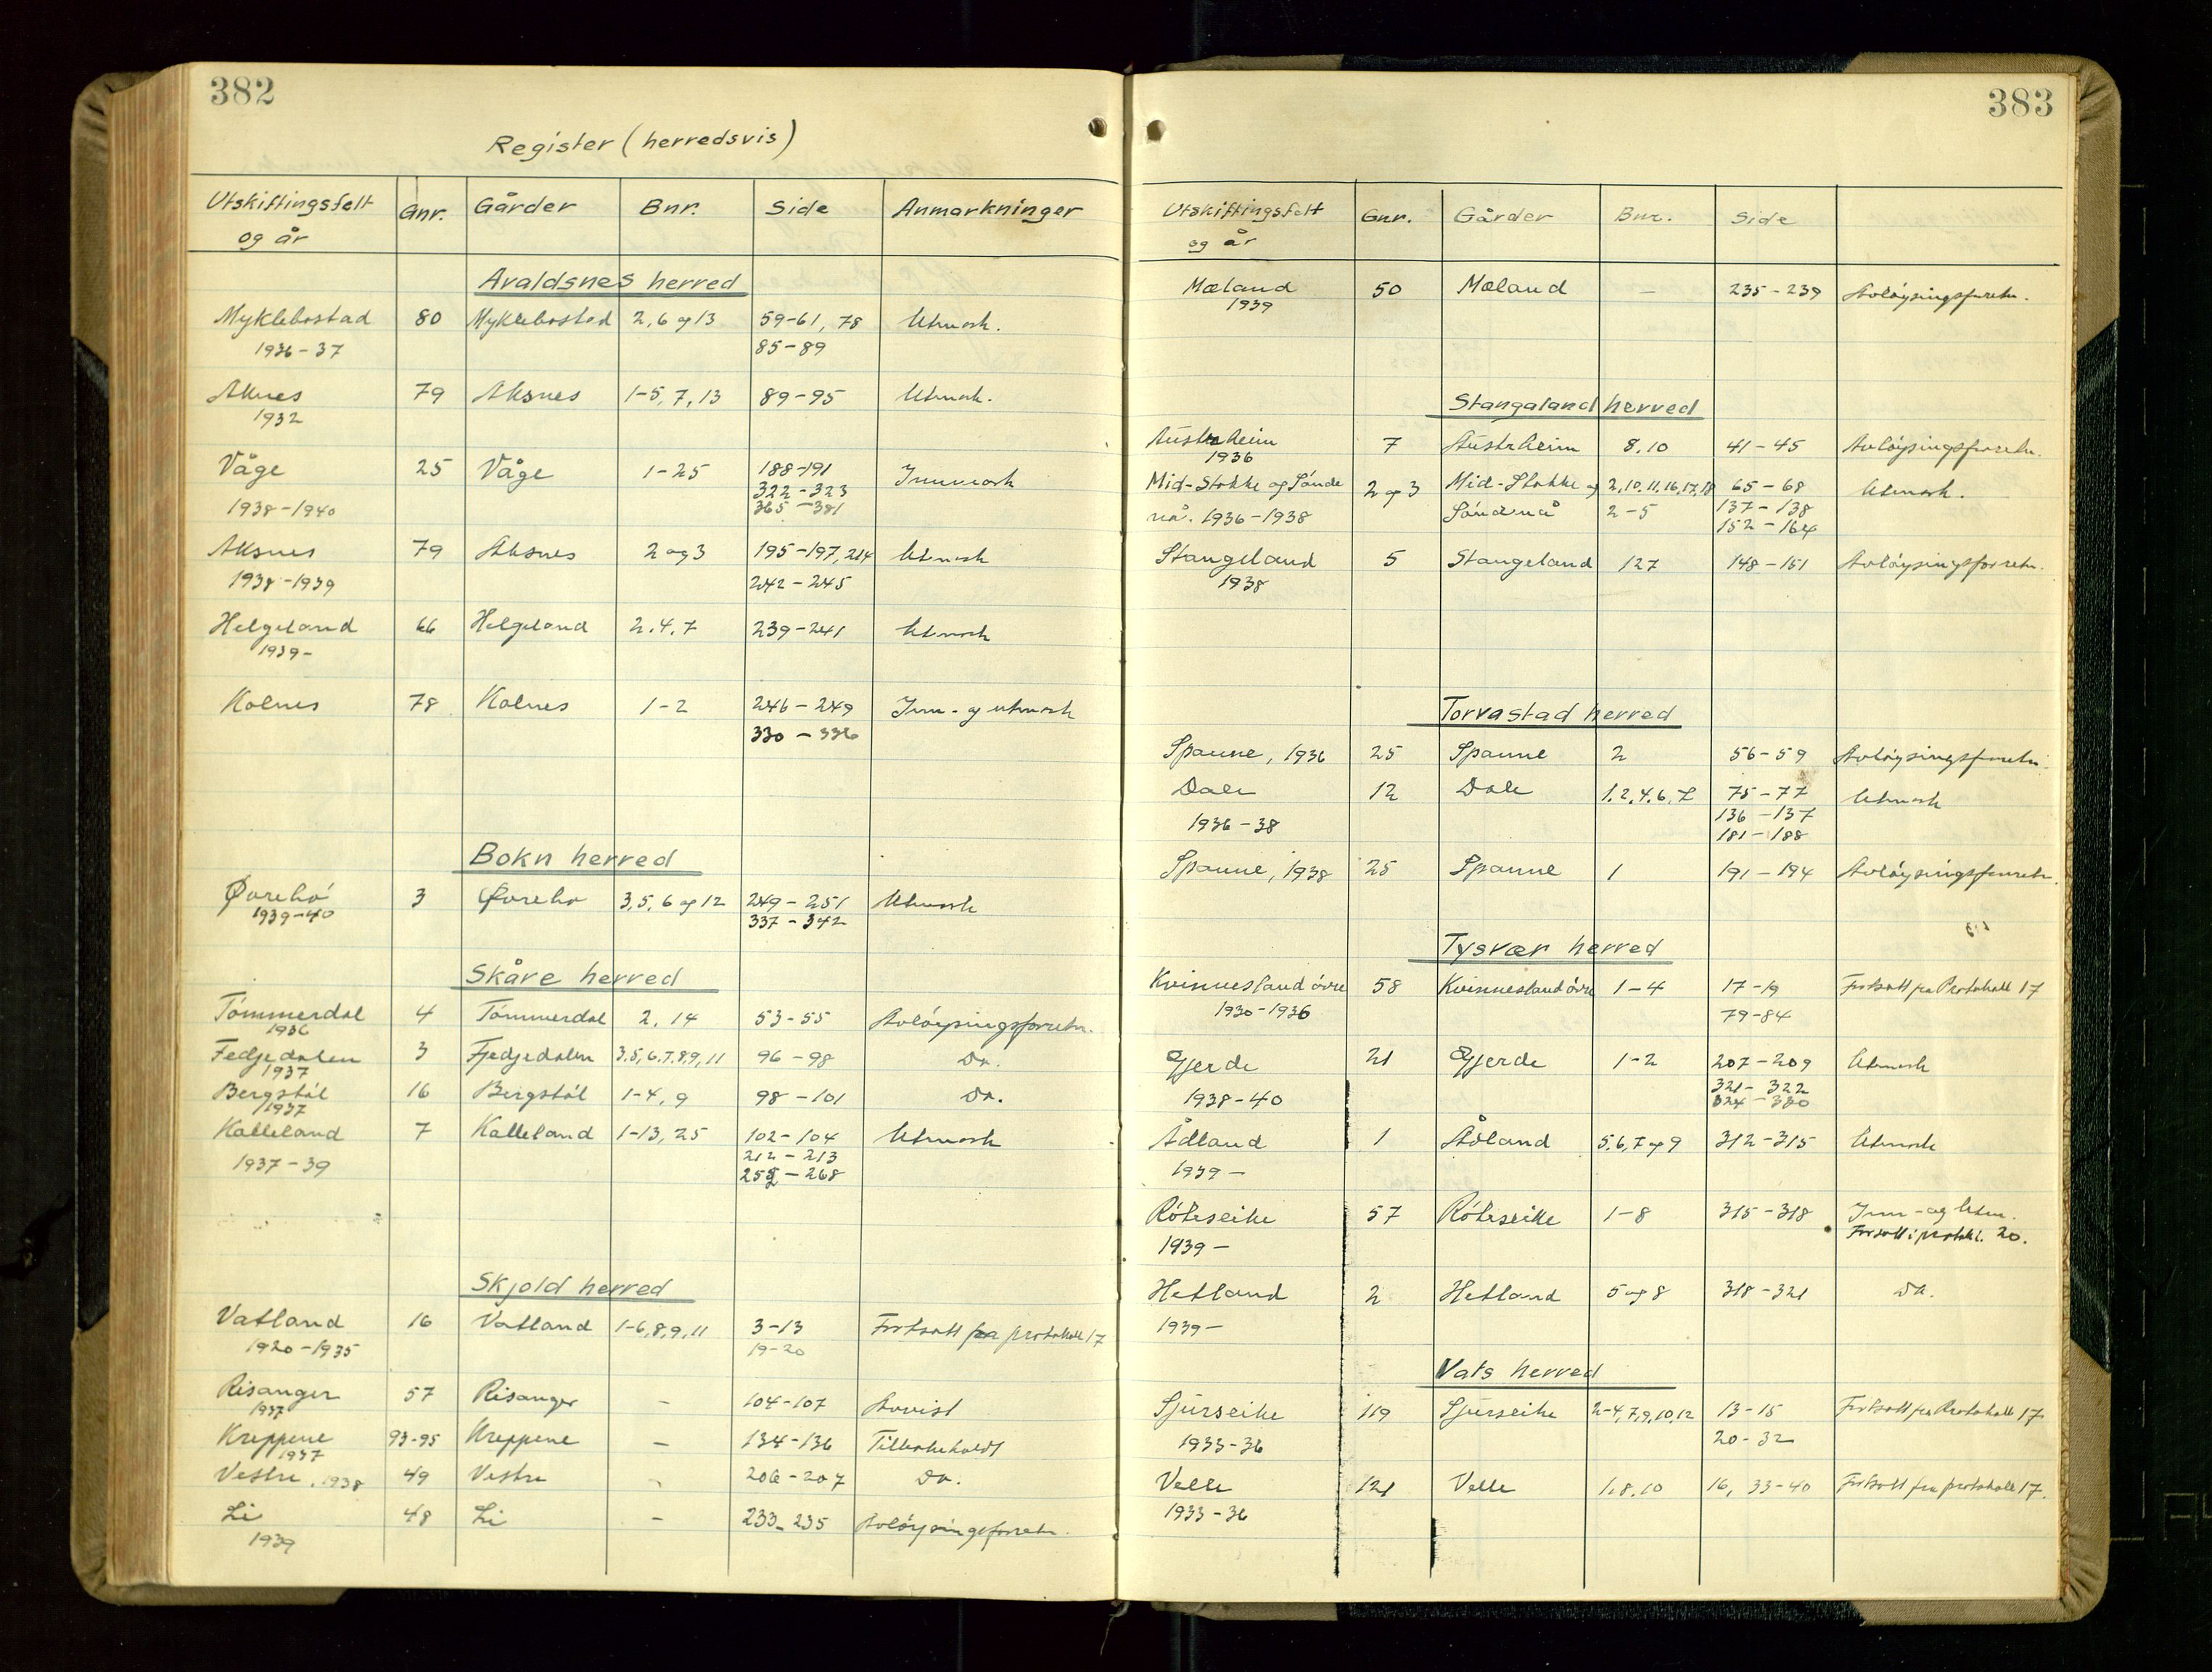 382
Register (herredsvis)
Utskiftingsfelt og år Gnr. Gårder Bnr. Side Anmarkninger
Avaldsnes herred
Myklebostad 80 Myklebostad 2, 6 og 13 59-61, 78 Utmark.
1936-37 85-89
Aknes 79 Aksnes 1-5, 7, 13 89-95 Utmark.
1932
Våge 25 Våge 1-25 188-191 Innmark
322-323
1938-1940 365-381
Aksnes 79 Aksnes 2 og 3 195-197, 214 Utmark
1938-1939 242-245
Helgeland 66 Helgeland 2.4.7 239-241 Utmark
1939-
Kolnes 78 Kolnes 1-2 246-249 Inn- og utmark
330-336
Bokn herred
Øvrebø 3 Øvrebø 3, 5, 6 og 12 249-251 Utmark
1939-40 337-342
Skåre herred
Tømmerdal 4 Tømmerdal 2, 14 53-55 Avløysingsforretn.
1936
Fedjedalen 3 Fjedjedalen 3.5, 6, 7, 8, 9, 11 96-98 Do.
1937
Bergstøl 16 Bergstøl 1-4, 9 98-101 Do.
1937
Kalleland 7 Kalleland 1-13, 25 102-104 Utmark
212-213
1937-39 252-268
Skjold herred
Vatland 16 Vatland 1-6, 8, 9, 11 3-13 Fortsatt fra protokoll 17
1920-1935 19-20
Risanger 57 Risanger - 104-107 Avvist
1937
Kreppene 93-95 Kreppene - 134-136 Tilbakekaldt
1937
Vestre, 1938 49 Vestre - 206-207 Do.
Li 48 Li - 233-235 Avløysingsforretn.
1939
383
Utskiftingsfelt og år Gnr. Gårder Bnr. Side
Mæland 50 Mæland - 235-239 Avløysingsforretn.
1939
Stangaland herred
Austrheim 7 Austrheim 8.10 41-45 Avløysingsforretn.
1936
Mid-Stokke og Sønde 2 og 3 Mid-Stokke og 2, 10. 11, 16, 17, 18 65-68 Utmark.
nå. 1936-1938 Søndenå 2-5 137-138
152-164
Stangeland 5 Stangeland 127 148-151 Avløysingsforretn.
1938
Torvastad herred
Spanne, 1936 25 Spanne 2 56-59 Avløysingsforretn.
Dale 12 Dale 1.2.4.6, 7 75-77 Utmark
1936-38 136-137
181-188
Spanne, 1938 25 Spanne 1 191-194 Avløysingsforretn.
Tysvær herred
Kvinnesland øvre 58 Kvinnesland øvre 1-4 17-19 Fortsatt fra Protokoll 17
1930-1936 79-84
Gjerde 21 Gjerde 1-2 207-209 Utmark
321-322
1938-40 324-330
Ådland 1 Ådland 5.6, 7 og 9 312-315 Utmark
1939-
Røkseike 57 Røkseike 1-8 315-318 Inn- og Utm.
1939- Fortsatt i protokl. 20.
Hetland 2 Hetland 5 og 8 318-321 Do.
1939-
Vats herred
Sjurseike 119 Sjurseike 2-4, 7, 9, 10, 12 13-15 Fortsatt fra Protokoll 17
1933-36 20-32
Velle 121 Velle 1.8.10 16, 33-40 Fortsatt fra protokoll 17.
1933-36